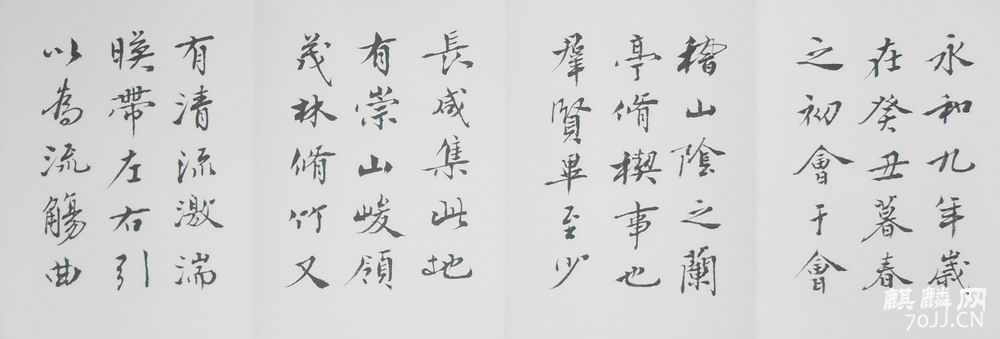 永和九年歲
在癸丑暮春
之初會于會
稽山陰之蘭
亭脩禊事也
羣賢畢至少
長咸集此地
有崇山峻領
茂林脩竹又
有清流激湍
暎帶左右引
以為流觴曲
麒麟网
70JJ.CN